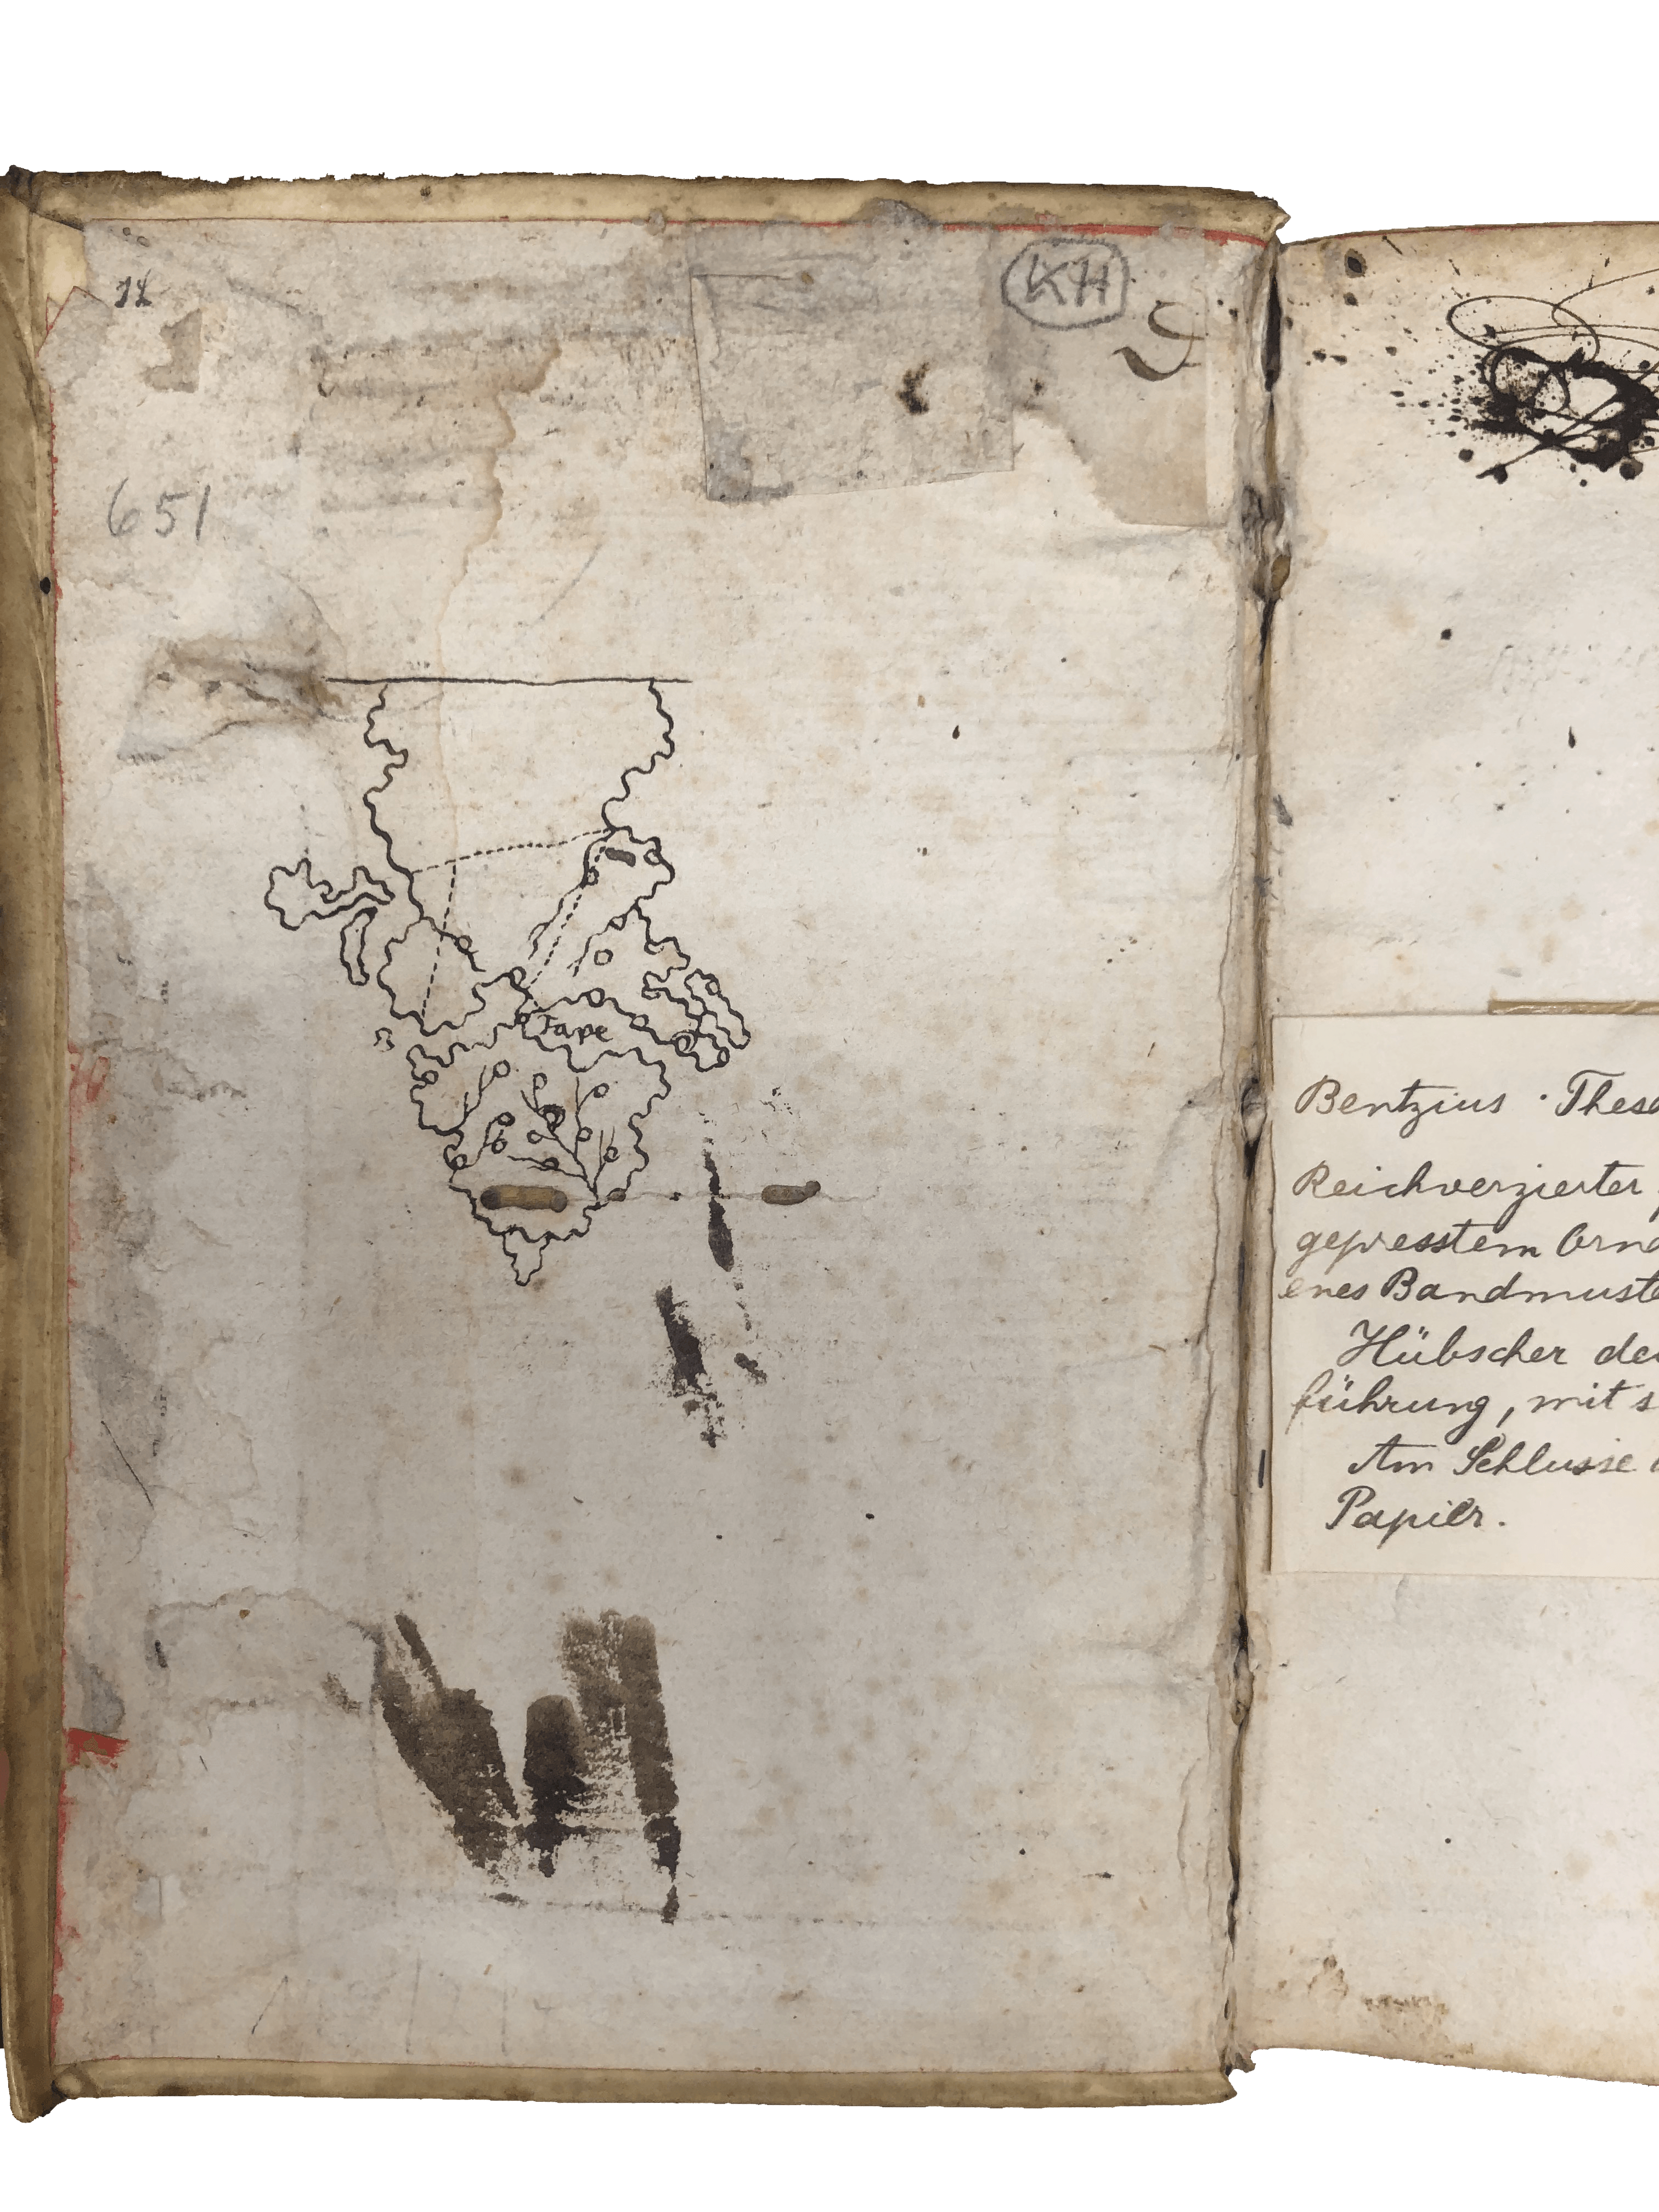 14
KH
D
651
Tape
Bentzius · Thesa
Reichverzierter
gepresstem Orna
enes Bandmuste
Hübscher de
führung, mit s
Am Schlusse
Papier.